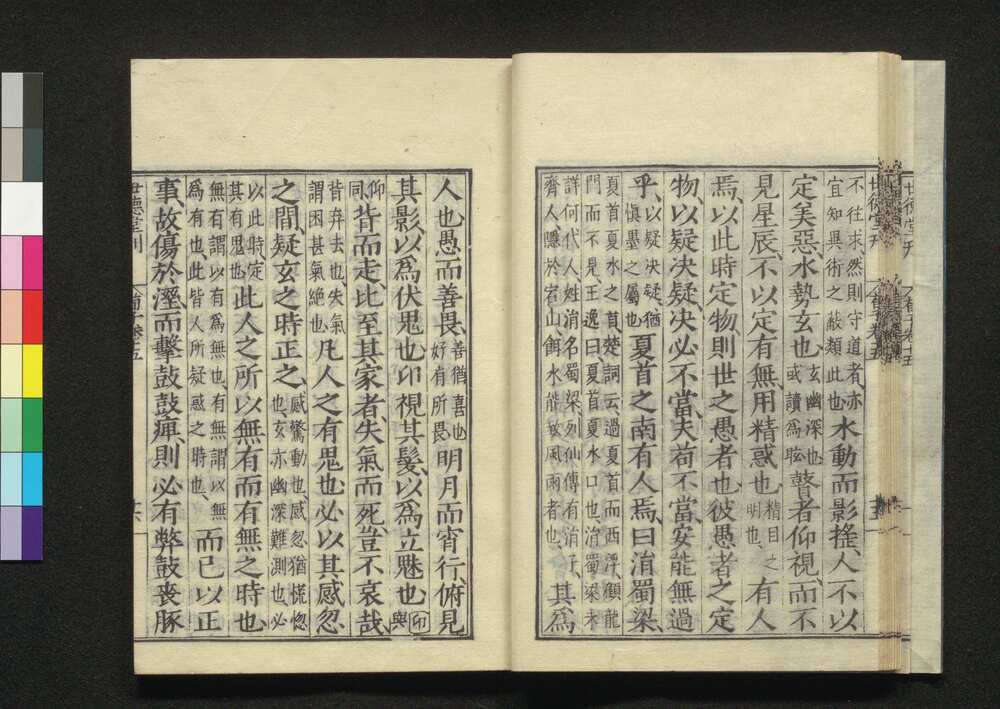 世德堂刊
不往求然則守道者亦
宜知異術之蔽類此也
水動而影搖人不以
定美惡水勢玄也
玄幽深也
或讀為眩
瞽者仰視而不
見星辰不以定有無用精惑也
精目之
明也
有人
焉以此時定物則世之愚者也彼愚者之定
物以疑決疑決必不當夫苟不當安能無過
乎
以疑決疑猶
慎墨之屬也
夏首之南有人焉曰涓蜀梁
夏首夏水之首楚詞云過夏首而西浮顧龍
門而不見王逸曰夏首夏水口也涓蜀梁未
詳何代人姓涓名蜀梁列仙傳有涓子
齊人隱於宕山餌水能致風雨者也
其為
人也愚而善畏
善猶喜也
好有所畏
明月而宵行俯見
其影以為伏鬼也卬視其髮以為立魅也
卬
與
仰
同
背而走比至其家者失氣而死豈不哀哉
背弃去也失氣
謂困甚氣絕也
凡人之有鬼也必以其感忽
之間疑玄之時正之
感驚動也感忽猶慌惚
也玄亦幽深難測也必
以此時定
其有鬼也
此人之所以無有而有無之時也
無有謂以有為無也有無謂以無
為有也此皆人所疑惑之時也
而已以正
事故傷於溼而擊鼓鼓痺則必有弊鼓喪豚
世德堂刊